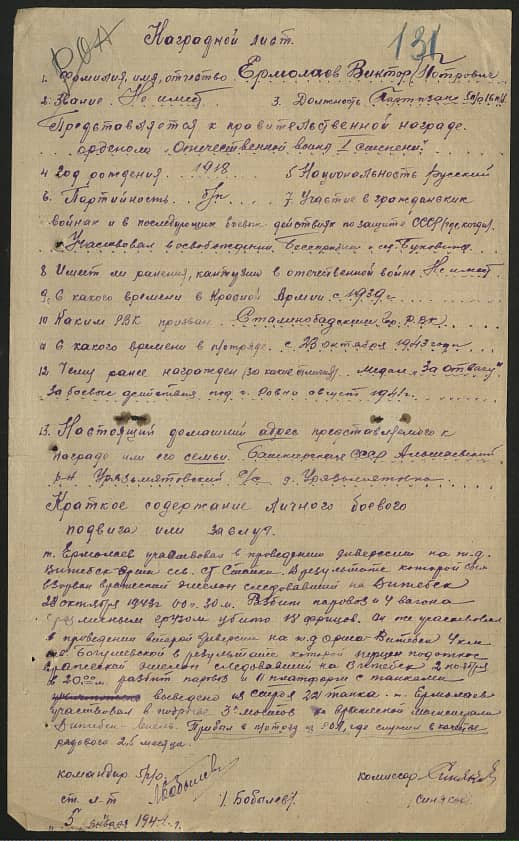 РОА
131
Наградной лист.
1. Фамилия, имя, отчество Ермолаев Виктор Петрович
2. Звание Не имеет 3. Должность Партизан
Представляется к правительственной награде
орденом "Отечественной войны I степени"
4 Год рождения 1918 5 Национальность Русский
6. Партийность б/п 7. Участие в гражданских
войнах и в последующих боевых действиях по защите СССР (где, когда).
Участвовал в освобождении Бессарабии и сев. Буковины
8 Имеет ли ранения, контузии в отечественной войне Не имеет
9. С какого времени в Красной Армии с 1939г
10 Каким РВК призван Сталинобадским Гор. РВК
11 С какого времени в п/отряде. с 23 октября 1943 года
12. Чему ранее награжден (за какие отличия). Медаль "За отвагу"
За боевые действия под г. Ровно август 1941 г.
13. Настоящий домашний адрес представляемого к
награде или его семьи. Башкирская СССР Альшаевский
р-н Уразъмятовский с/с д. Уразъмятовка
Краткое содержание личного боевого
подвига или заслуг.
т. Ермолаев участвовал в проведении диверсии на ж.д.
Витебск Орша сев. ст Стайки. В результате которой был
взорван вражеский эшелон следовавший на Витебск
28 октября 1943г 00 ч. 30 м. Разбит паровоз и 4 вагона
с различным грузом убито фрицов. Он же участвовал
в проведении второй диверсии на ж.д Орша-Витебск 4 км
Богушевской в результате которой
вражеский эшелон следовавший на Витебск 2 ноября
в 20.00 м. разбит паровоз и 11 платформ с танками
выведено из строя 22 танка. т. Ермолаев
участвовал в подрыве 3х мостов на вражеской магистрали
Прибыл в п/отряд из РОА, где служил в качестве
рядового 2,5 месяца.
командир п/о комиссар
ст. л-т /Бобылев/ (Синяков)
"5" января 1944 г.